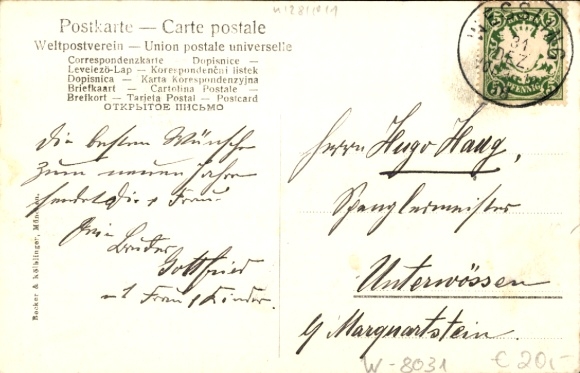 Postkarte — Carte postale
Weltpostverein — Union postale universelle
Correspondenzkarte Dopisnice —
Levelező-Lap — Korespondenční lístek
Dopisnica — Karta Korespondenzyjna
Briefkaart — Cartolina Postale —
Brefkort — Tarjeta Postal — Postcard
ОТКРЫТОЕ ПИСЬМО
31
DEZ
BAYERN
PFENNIG
5 5
Die besten Wünsche
zum neuen Jahre
sendet Dir & Frau
Dein
Bruder
Gottfried
Frau & Kinder.
Becker & Kölblinger, München.
Herrn Hugo Haug,
Spenglermeister
Unterwössen
Marquartstein.
W-8031 € 20,-